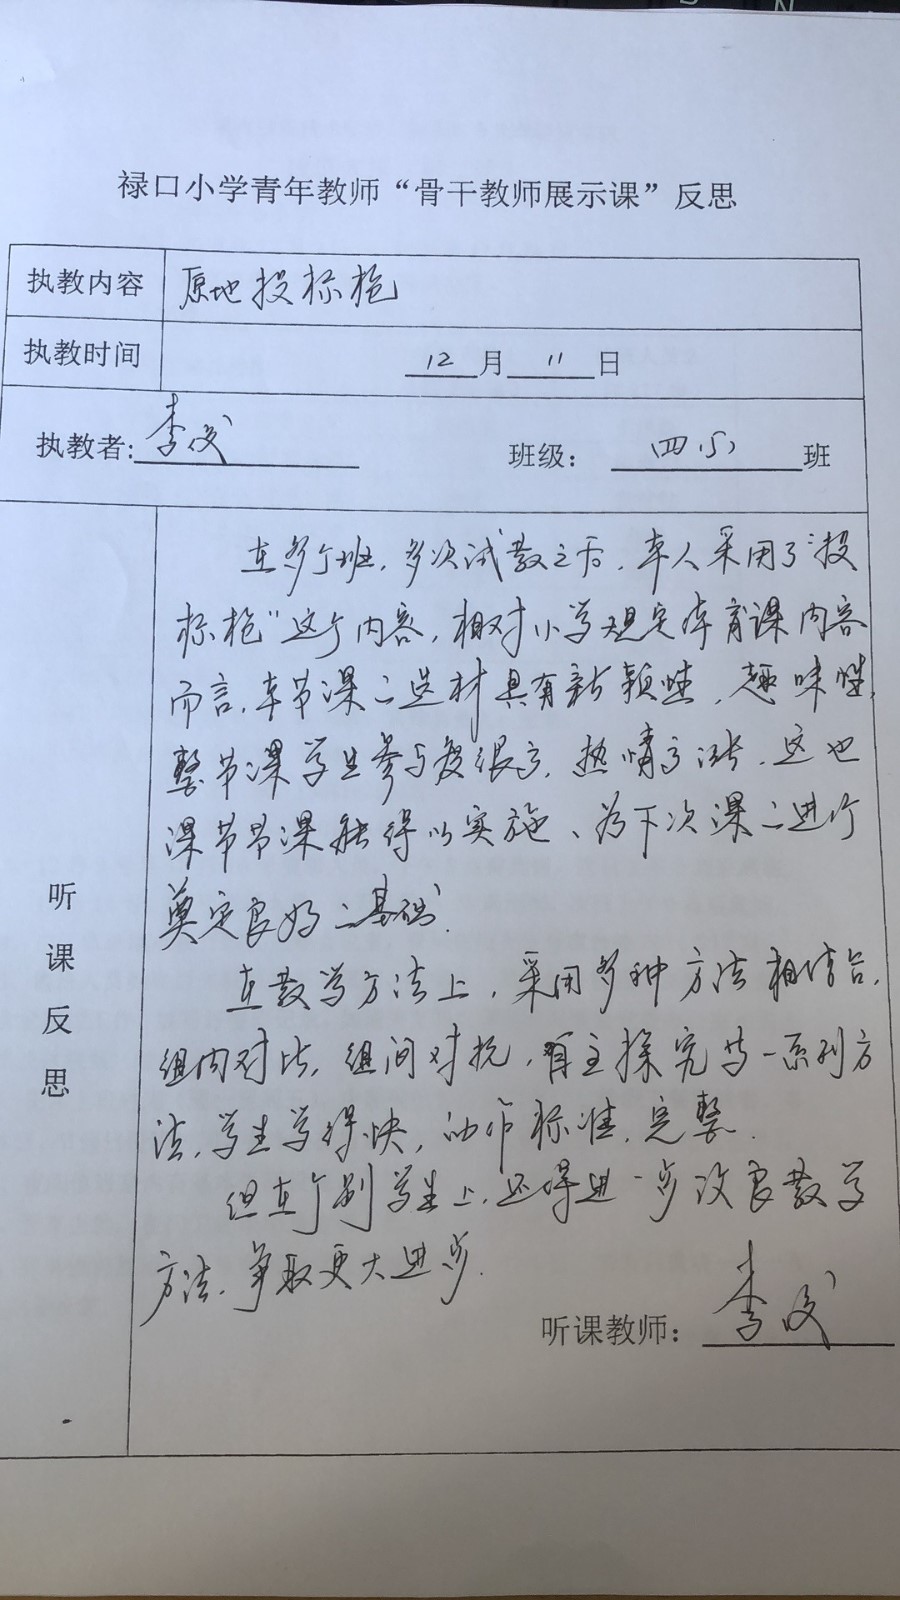 禄口小学青年教师“骨干教师展示课”反思
执教内容 原地投标枪
执教时间 12月11日
执教者: 李 班级: 四 班
听课反思
在多个班,多次试教之后,本人采用了“投
标枪”这个内容,相对小学规定体育课内容
而言,本节课的选材具有新颖性,趣味性,
整节课学生参与度很高,热情高涨,这也
课节节课能得以实施、为下次课的进行
奠定良好的基础.
在教学方法上,采用多种方法相结合,
组内对比,组间对抗,自主探究等一系列方
法,学生学得快,动作标准,完整.
但在个别学生上,还得进一步改良教学
方法,争取更大进步.
听课教师: 李